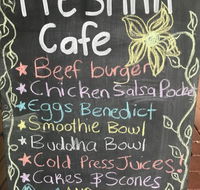 Cafe
Beef burger
Chicken Salsa Pocket
Eggs Benedict
Smoothie Bowl
Buddha Bowl
Cold Press Juices!
Cakes & Scones